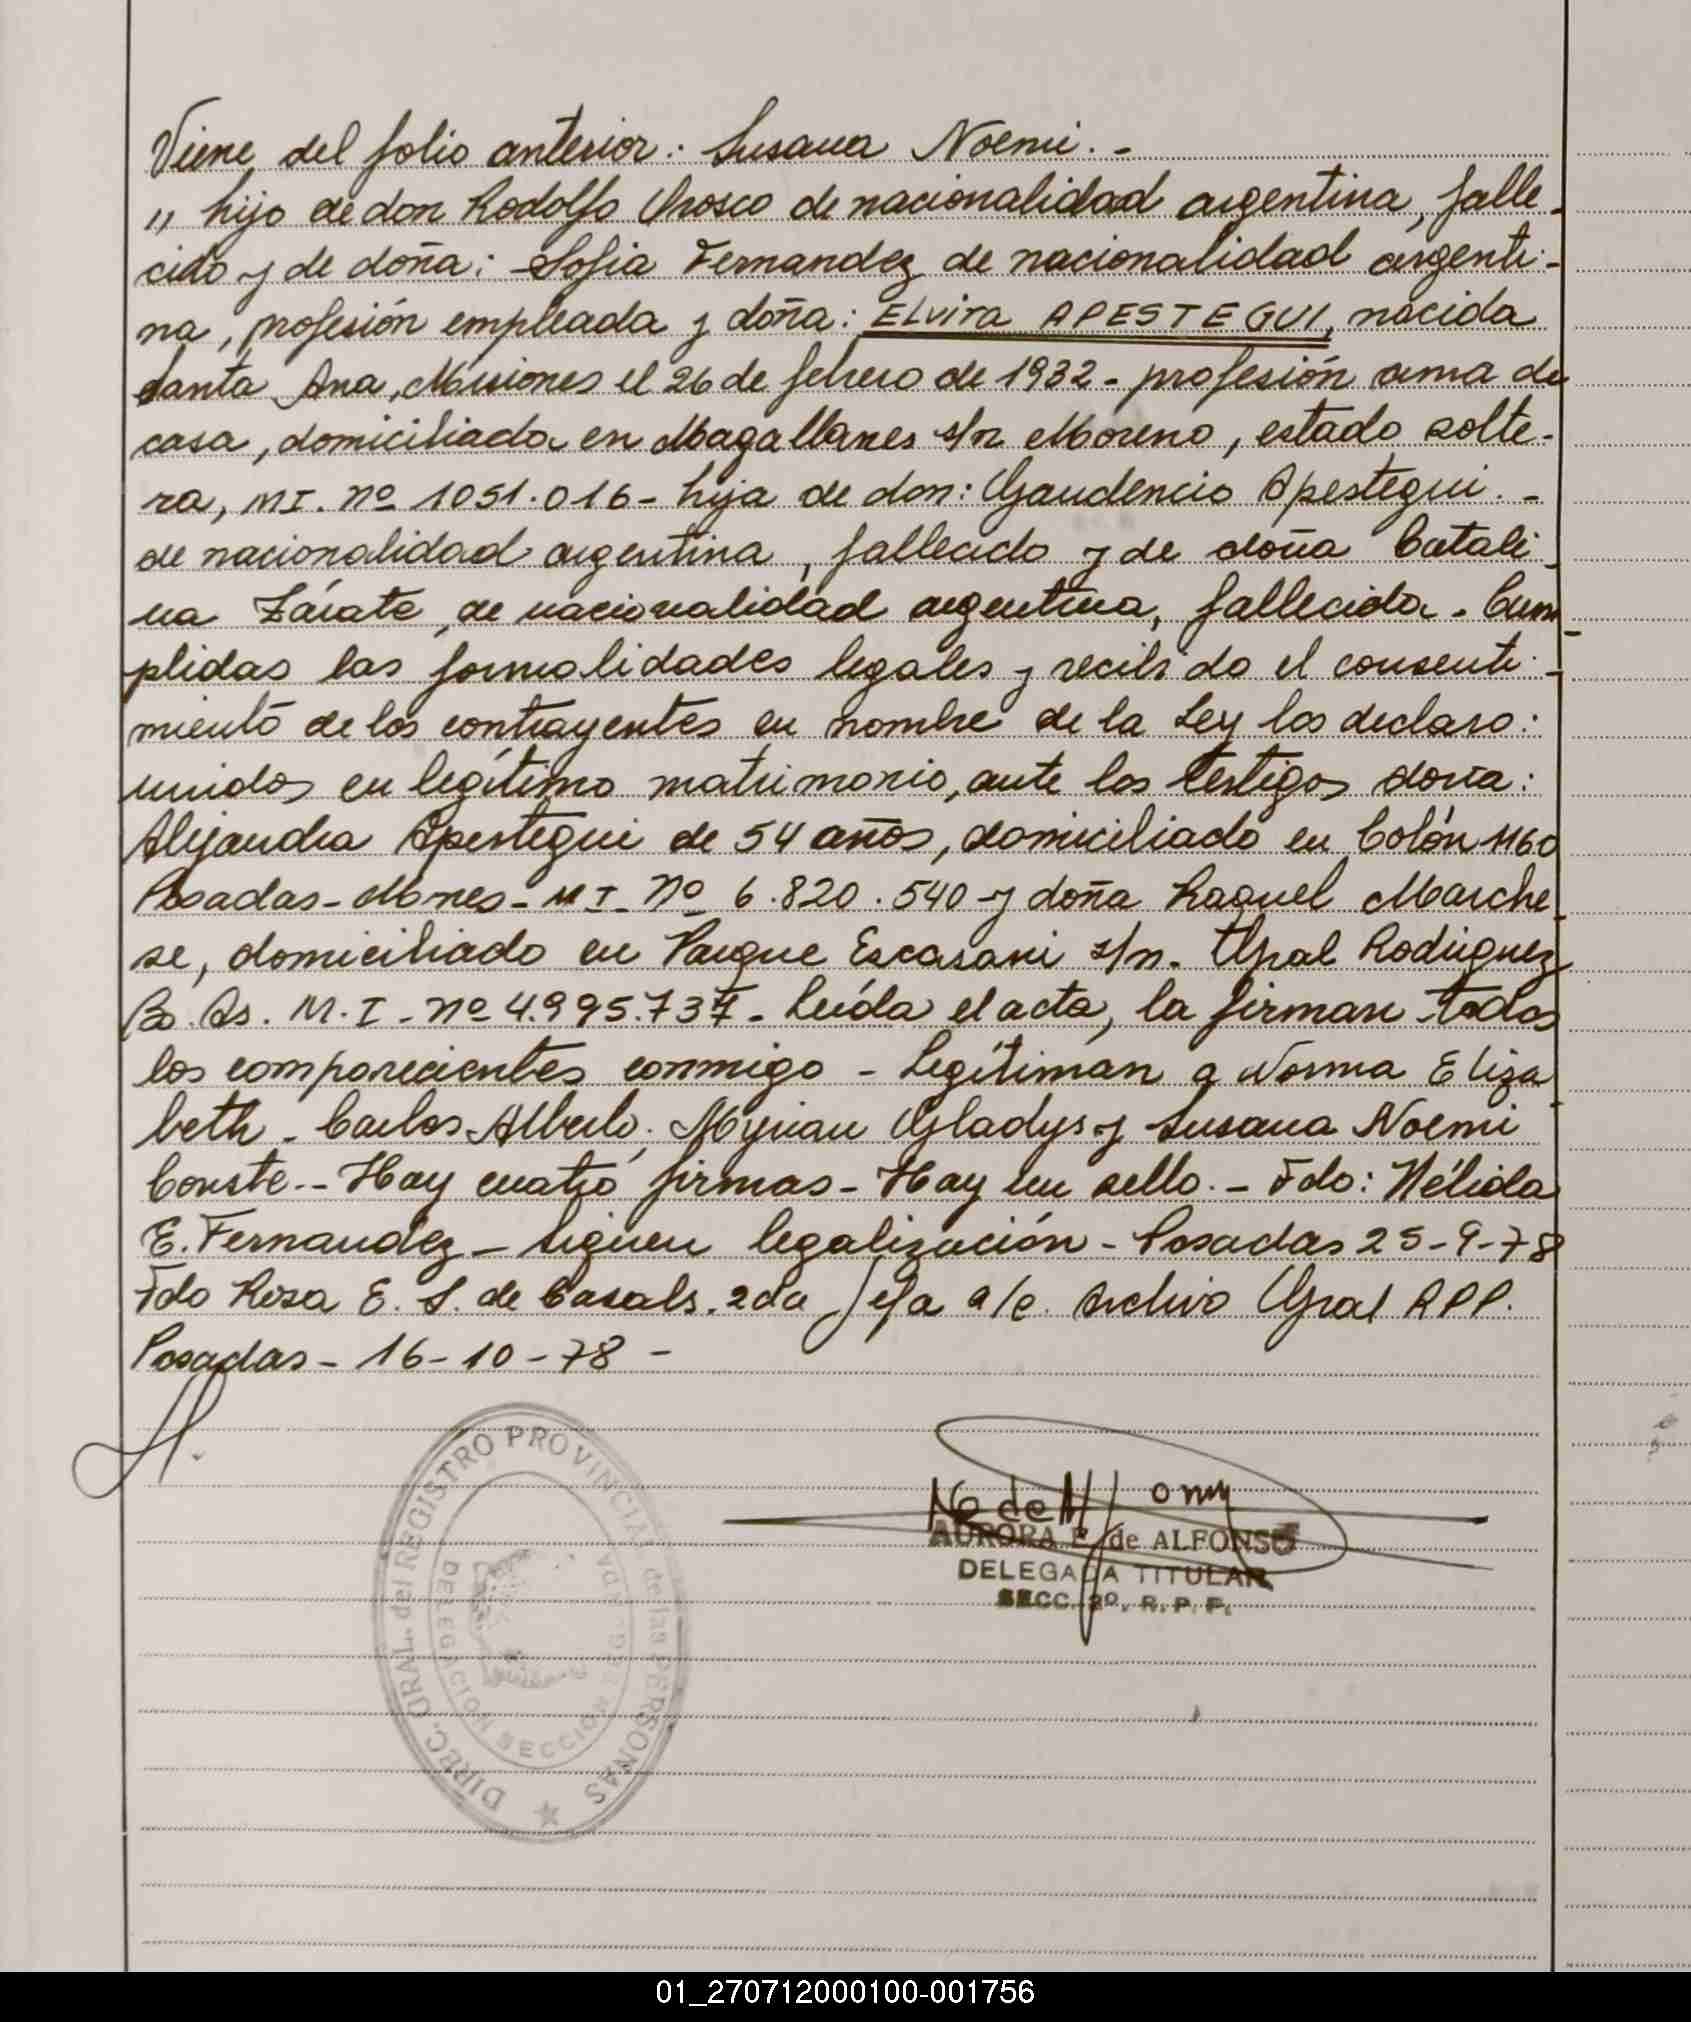 Viene del folio anterior: Susana Noemi. -
" hijo de don Rodolfo Orosco de nacionalidad argentina, falle-
cido y de doña: Sofia Fernandez de nacionalidad argenti-
na, profesión empleada y doña: Elvira APESTEGUI, nacida
Santa Ana, Misiones el 26 de febrero de 1932 - profesión ama de
casa, domiciliada en Magallanes s/n Moreno, estado solte-
ra, MI. Nº 1051.016 - hija de don: Gaudencio Apestegui. -
de nacionalidad argentina, fallecido y de doña Catali-
na Zárate, de nacionalidad argentina, fallecida. Cum-
plidas las formalidades legales y recibido el consenti-
miento de los contrayentes en nombre de la Ley los declaro:
unidos en legítimo matrimonio, ante los testigos doña:
Alejandra Apestegui de 54 años, domiciliado en Colón 1160
Posadas - Mnes - M I - Nº 6.820.540 - y doña Raquel Marche-
se, domiciliado en Parque Escasani s/n. Gral Rodriguez
Bs. As. M. I - Nº 4.995.737 - Leída el acta, la firman todos
los comparecientes conmigo - Legítiman a Norma Eliza
beth - Carlos Alberto, Myrian Gladys y Susana Noemi
Conste. - Hay cuatro firmas - Hay un sello. - Fdo: Nélida
E. Fernandez - Siguen legalización - Posadas 25-9-78
Fdo Rosa E. S. de Casals. 2da Jefa a/c. Archivo Gral RPP.
Posadas - 16-10-78 -
DIREC. GRAL. del REGISTRO PROVINCIAL de las PERSONAS
DELEGACION SECCION
AURORA E. de ALFONSO
DELEGADA TITULAR
SECC. 2º. R. P. P.
01_270712000100-001756